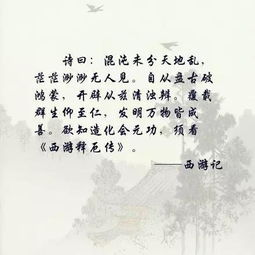 诗曰：混沌未分天地乱，
茫茫渺渺无人见。自从盘古破
鸿蒙，开辟从兹清浊辨。覆载
群生仰至仁，发明万物皆成
善。欲知造化会元功，须看
《西游释厄传》。
——西游记